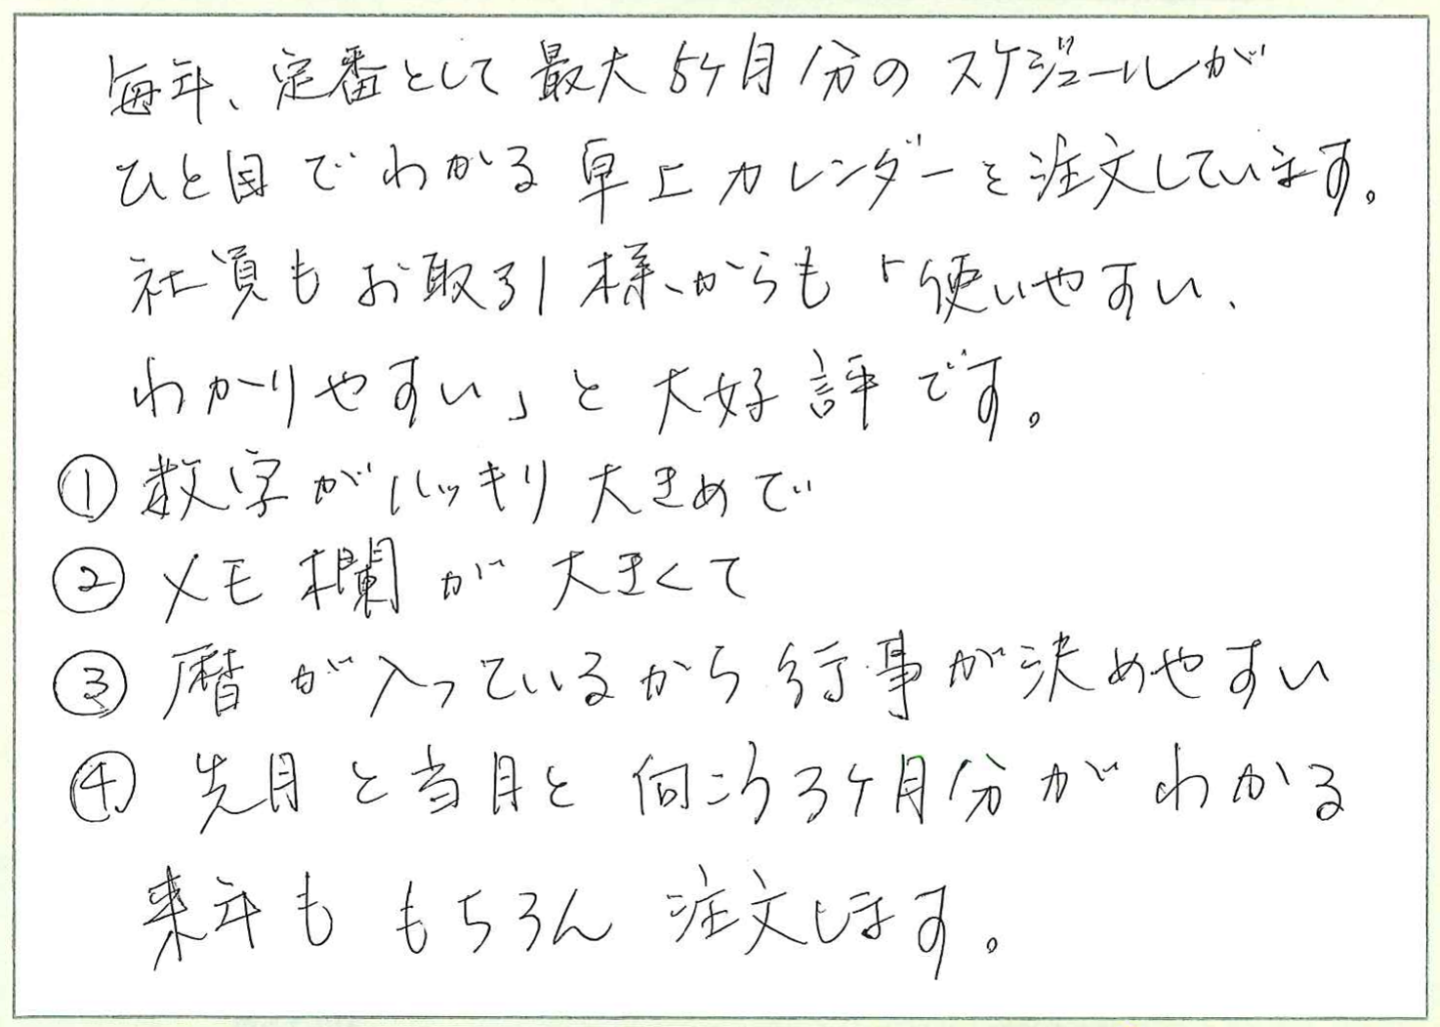 毎年、定番として最大5ケ月分のスケジュールが
ひと目でわかる卓上カレンダーを注文しています。
社員もお取引様からも「使いやすい、
わかりやすい」と大好評です。
① 数字がハッキリ大きめで
② メモ欄が大きくて
③ 暦が入っているから行事が決めやすい
④ 先月と当月と向こう3ケ月分がわかる
来年ももちろん注文します。